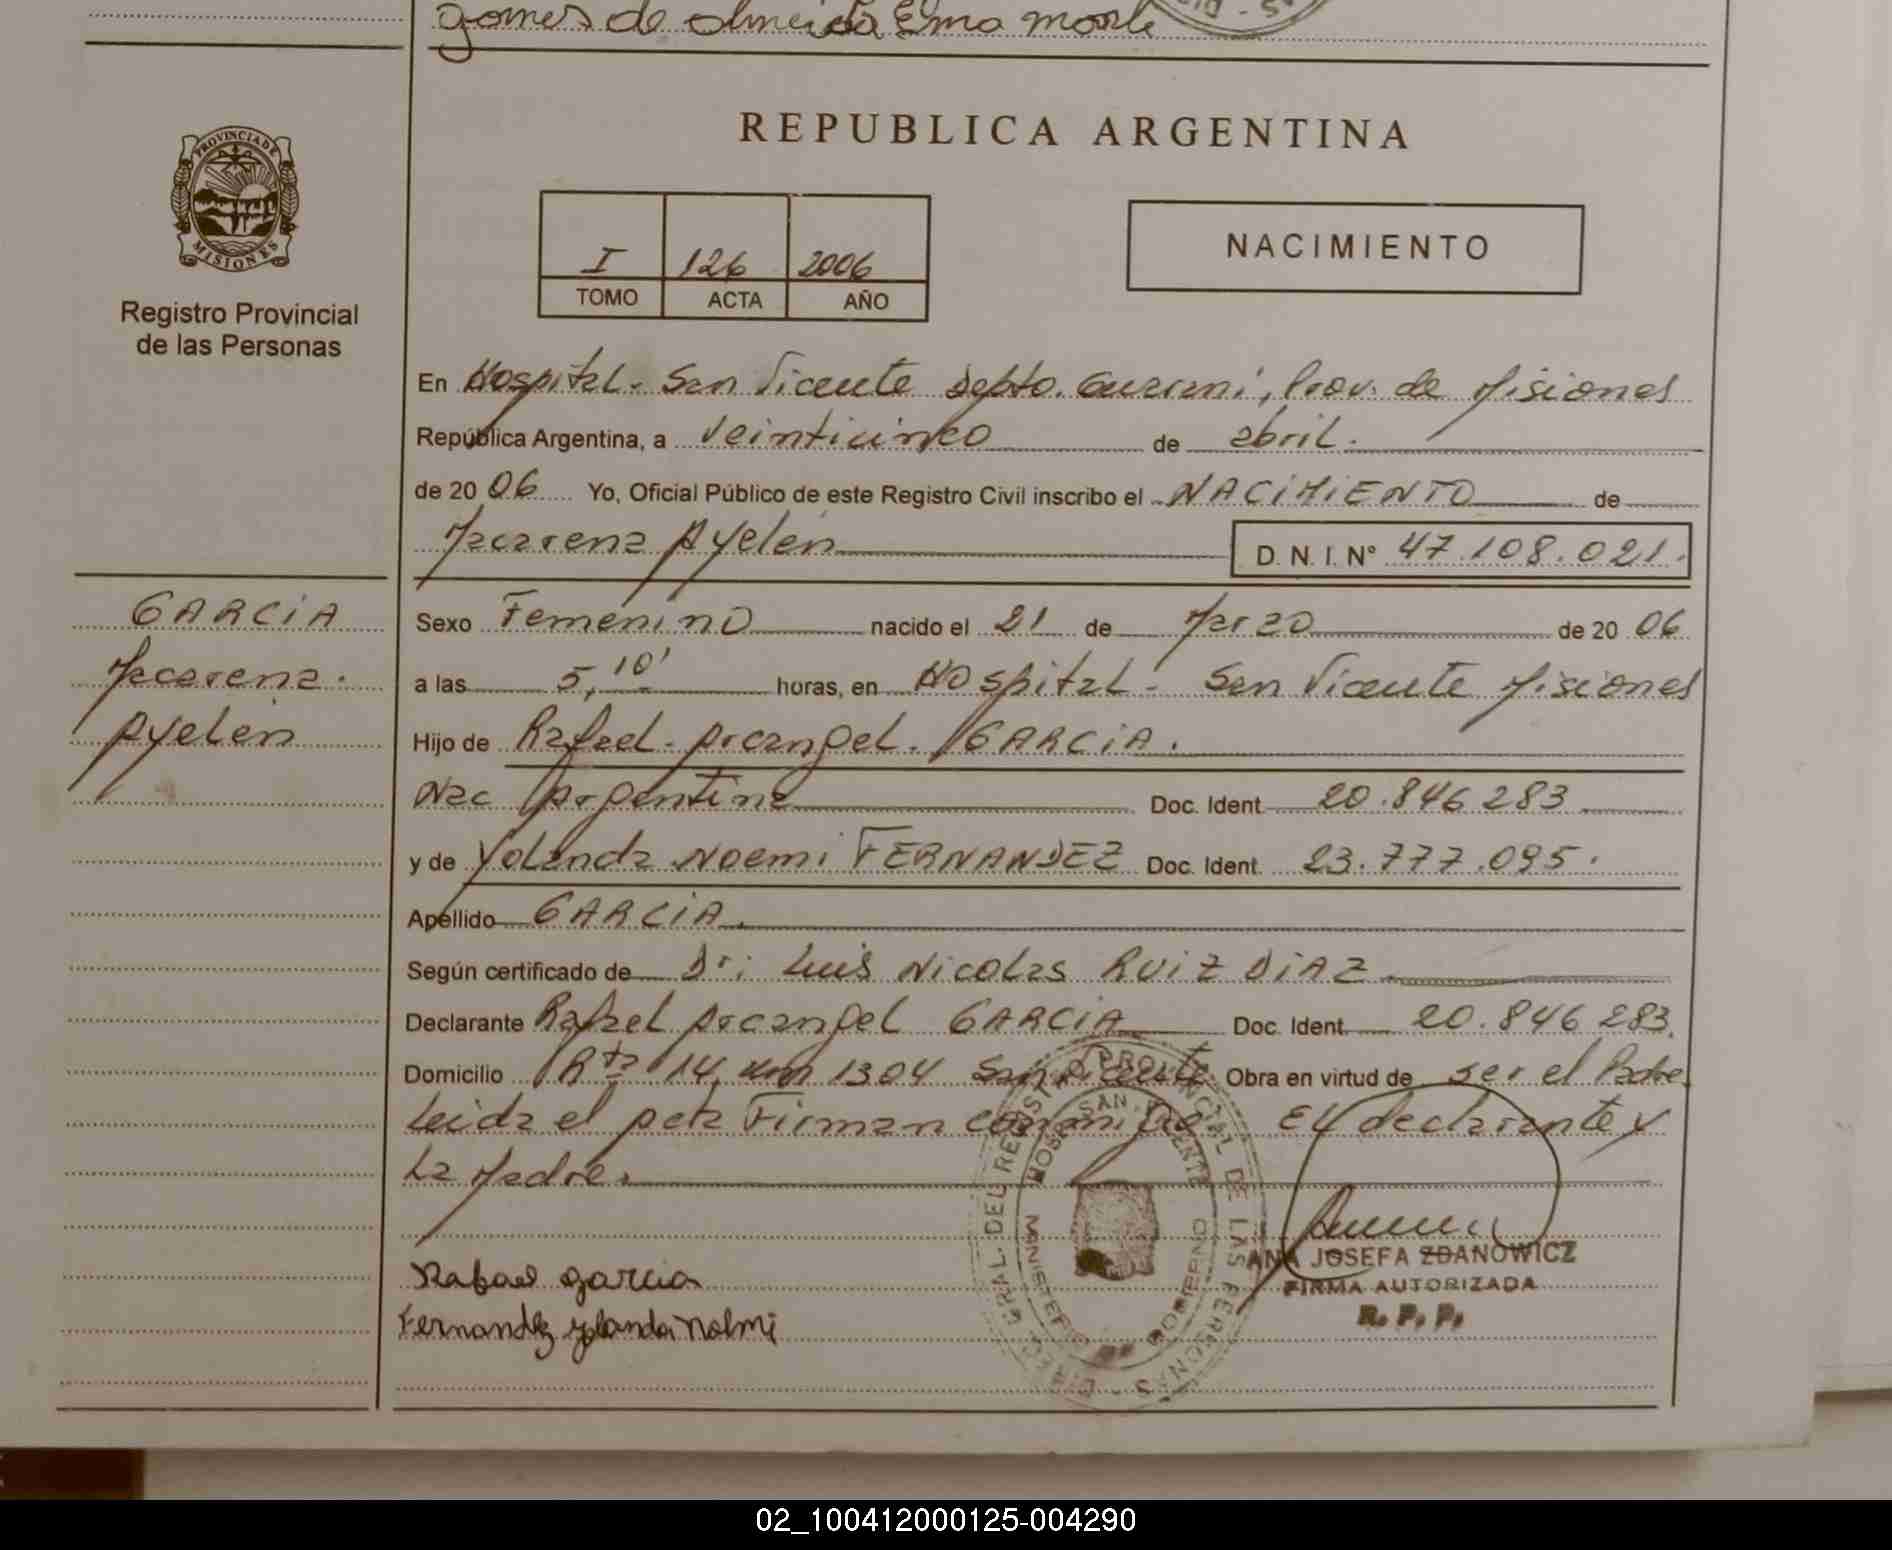 gomes de olmeida Elma mable
PROVINCIA DE
MISIONES
Registro Provincial
de las Personas
REPUBLICA ARGENTINA
I 126 2006
TOMO ACTA AÑO
NACIMIENTO
En Hospital - San Vicente Depto. Guarani, Prov. de Misiones
República Argentina, a veinticinco de abril.
de 20 06 Yo, Oficial Público de este Registro Civil inscribo el NACIMIENTO de
Macarena Ayelén D. N. I. Nº 47.108.021.
GARCIA
Macarena.
Ayelén
Sexo Femenino nacido el 21 de Marzo de 20 06
a las 5,10' horas, en Hospital - San Vicente Misiones
Hijo de Rafael Arcangel GARCIA.
Nac Argentina Doc. Ident. 20.846 283
y de Yolanda Noemi FERNANDEZ Doc. Ident. 23.777.095.
Apellido GARCIA.
Según certificado de Dr: Luis Nicolas RUIZ DIAZ
Declarante Rafael Arcangel GARCIA Doc. Ident. 20.846 283.
Domicilio Rta 14, km 1304 San Vicente Obra en virtud de ser el Padre
Leida el Acta Firman conmigo El declarante y
La Madre.
ANA JOSEFA ZDANOWICZ
FIRMA AUTORIZADA
R. P. P.
Rafael garcia
Fernandez yolanda Nolmi
02_100412000125-004290